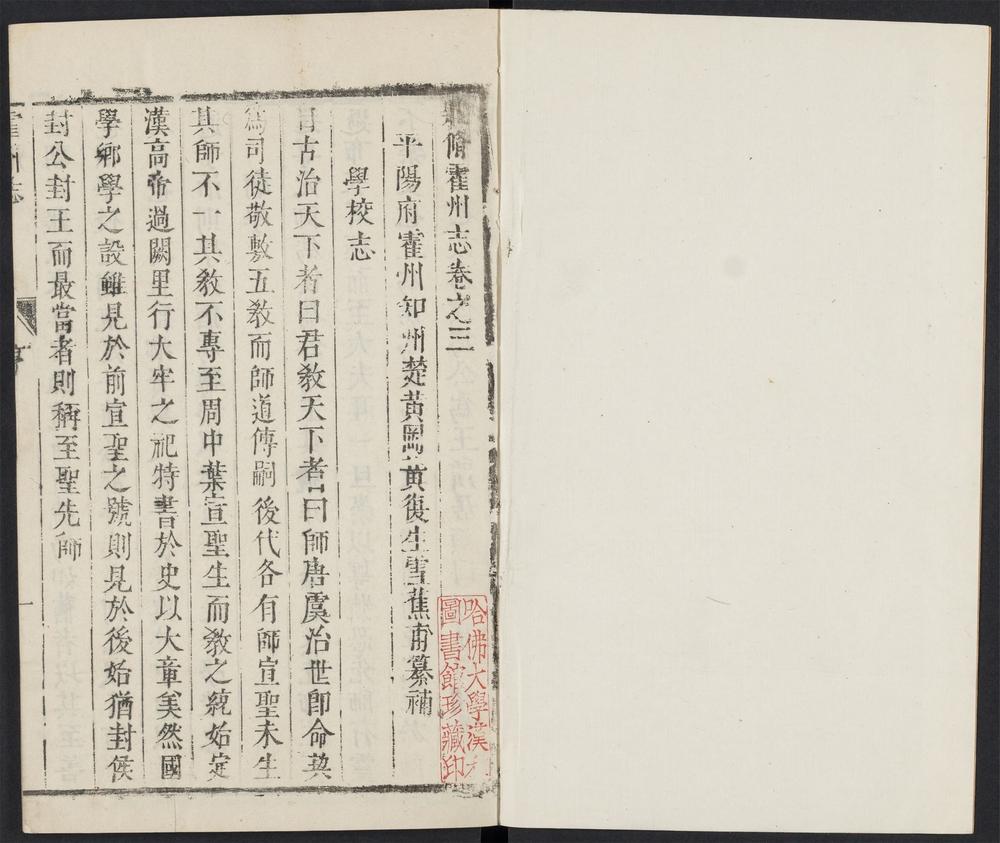 脩霍州志卷之三
平陽府霍州知州楚黃岡黃復生雪蕉甫纂補
學校志
自古治天下者曰君敎天下者曰師唐虞治世卽命契
爲司徒敬敷五敎而師道傳嗣後代各有師宣聖未生
其師不一其敎不專至周中葉宣聖生而敎之統始定
漢高帝過闕里行大牢之祀特書於史以大章美然國
學鄉學之設雖見於前宣聖之號則見於後始猶封侯
封公封王而最當者則稱至聖先師
霍州志
一
哈佛大學漢和
圖書館珍藏印